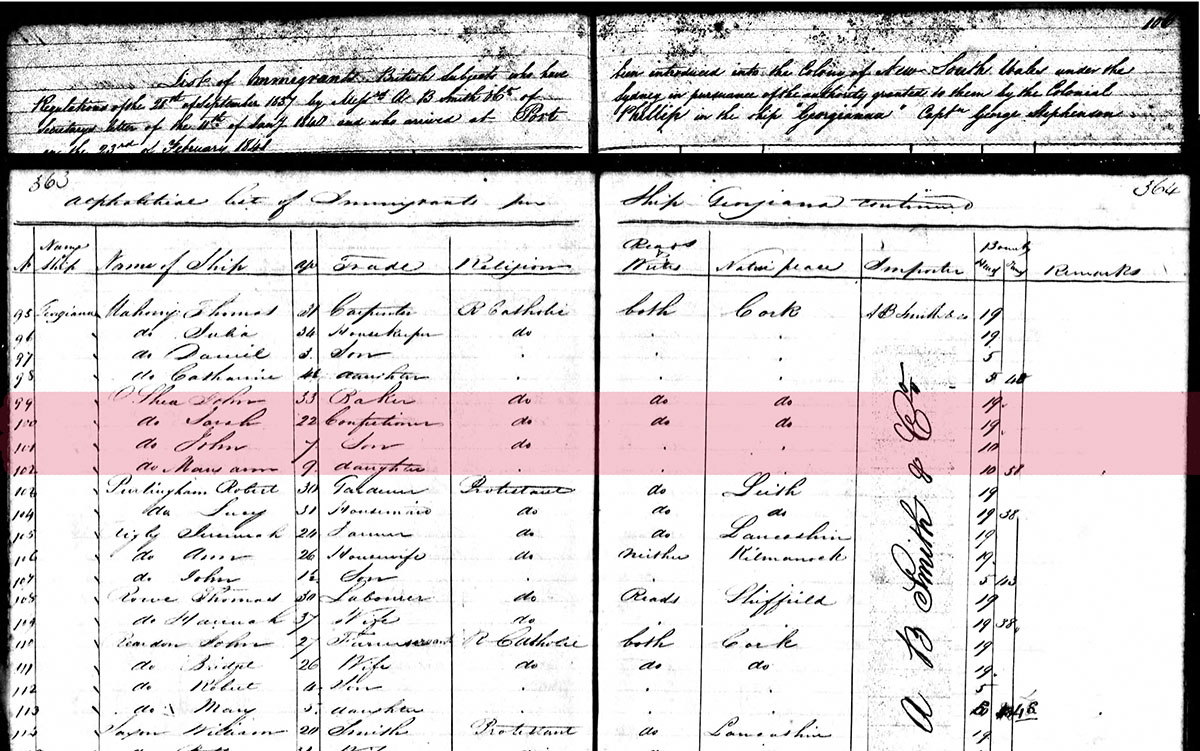 106
List of Immigrants British Subjects who have been introduced into the Colony of New South Wales under the
Regulations of the 28th of September 1837 by Messrs A B Smith &Co of Sydney in pursuance of the authority granted to them by the Colonial
Secretarys letter of the 11th of Jany 1840 and who arrived at Port Phillip in the ship "Georgianna" Captn George Stephenson
on the 23rd of February 1841
363 364
Alphabetical list of Immigrants per Ship Georgiana continued
No Name Ship Name of Ship age Trade Religion Reads Writes Native place Importer Bounty Remarks
95 Georgiana Mahony Thomas 31 Carpenter R Catholic both Cork A B Smith & Co 19
96 do Julia 34 Housekeeper do 19
97 do Daniel 3 Son 5
98 do Catharine daughter 5 48
99 O'Shea John 33 Baker do do do 19
100 do Sarah 22 Confectioner do do do 19
101 do John 7 Son 10
102 do Mary ann 9 daughter 10 58
103 Robert 30 Gardener Protestant do Leith 19
104 do Lucy 31 Housemaid do do do 19 38
105 Jeremiah 24 Farmer do do Lancashire 19
106 do Ann 26 Housewife do Neither Kilmarnock 19
107 do John Son 5 43
108 Rowe Thomas 30 Labourer do Reads Sheffield 19
109 do Hannah 37 Wife do 19 38
110 Reardon John 27 Farm servant R Catholic both Cork 19
111 do Bridget 26 Wife do do do 19
112 do Robert 4 Son 5
113 do Mary 5 daughter
114 Saxon William 20 Smith Protestant do Lancashire 19
A B Smith & Co